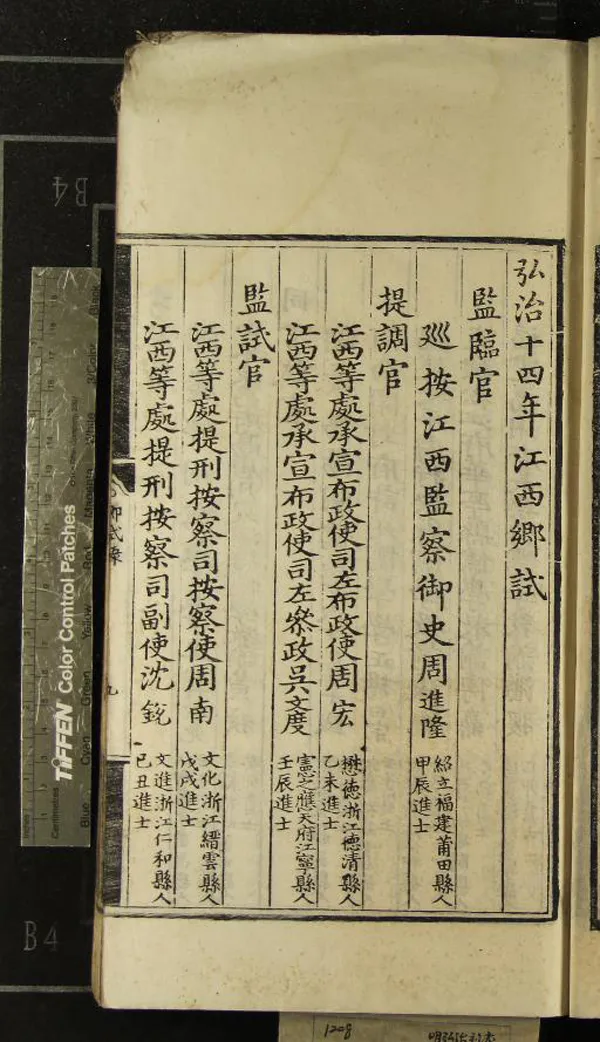 弘治十四年江西鄉試
監臨官
巡按江西監察御史周進隆
紹立福建莆田縣人
甲辰進士
提調官
江西等處承宣布政使司左布政使周宏
懋德浙江德清縣人
乙未進士
江西等處承宣布政使司左參政吳文度
憲之應天府江寧縣人
壬辰進士
監試官
江西等處提刑按察司按察使周南
文化浙江縉雲縣人
戊戌進士
江西等處提刑按察司副使沈銳
文進浙江仁和縣人
己丑進士
九
B4
B4
TIFFEN Color Control Patches
Centimetres
Blue
Cyan
Green
Yellow
Red
Magenta
White
3/Color
Black
1208